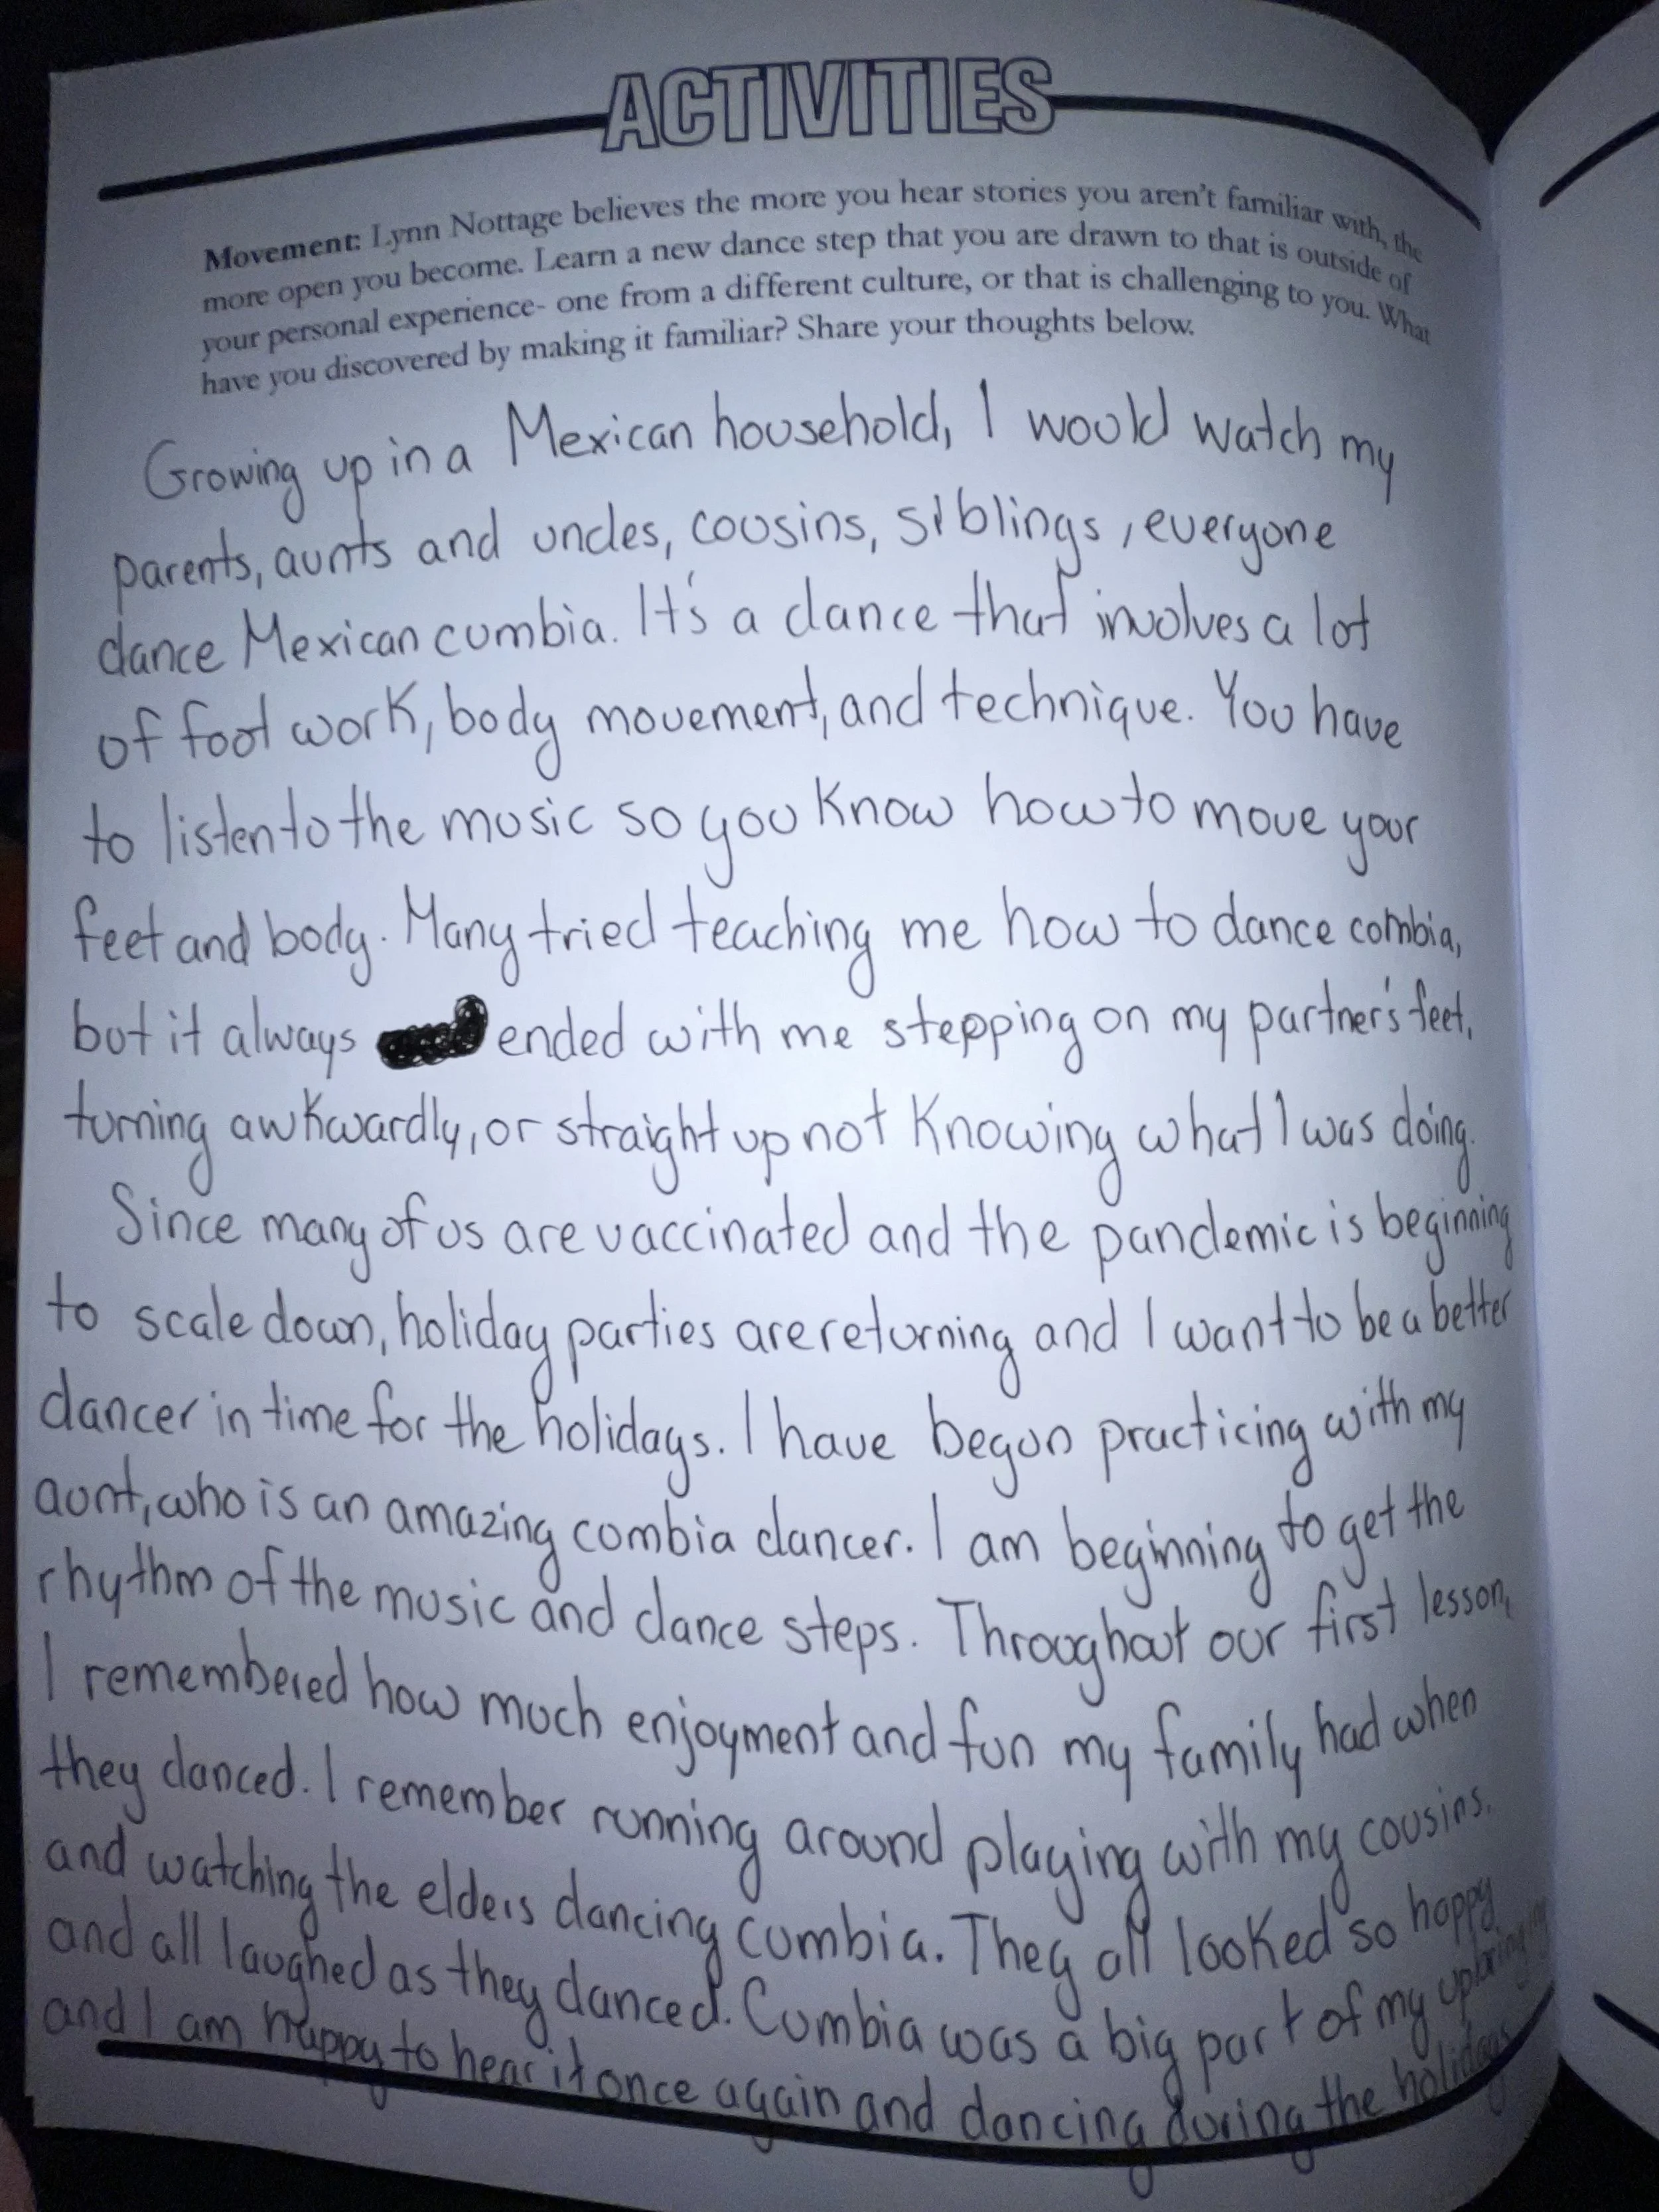 ACTIVITIES
Movement: Lynn Nottage believes the more you hear stories you aren't familiar with, the
more open you become. Learn a new dance step that you are drawn to that is outside of
your personal experience- one from a different culture, or that is challenging to you. What
have you discovered by making it familiar? Share your thoughts below.
Growing up in a Mexican household, I would watch my
parents, aunts and uncles, cousins, siblings, everyone
dance Mexican cumbia. It's a dance that involves a lot
of foot work, body movement, and technique. You have
to listen to the music so you know how to move your
feet and body. Many tried teaching me how to dance cumbia,
but it always ended with me stepping on my partner's feet,
turning awkwardly, or straight up not knowing what I was doing.
Since many of us are vaccinated and the pandemic is beginning
to scale down, holiday parties are returning and I want to be a better
dancer in time for the holidays. I have begun practicing with my
aunt, who is an amazing cumbia dancer. I am beginning to get the
rhythm of the music and dance steps. Throughout our first lesson,
I remembered how much enjoyment and fun my family had when
they danced. I remember running around playing with my cousins,
and watching the elders dancing cumbia. They all looked so happy
and all laughed as they danced. Cumbia was a big part of my upbringing
and I am happy to hear it once again and dancing during the holidays